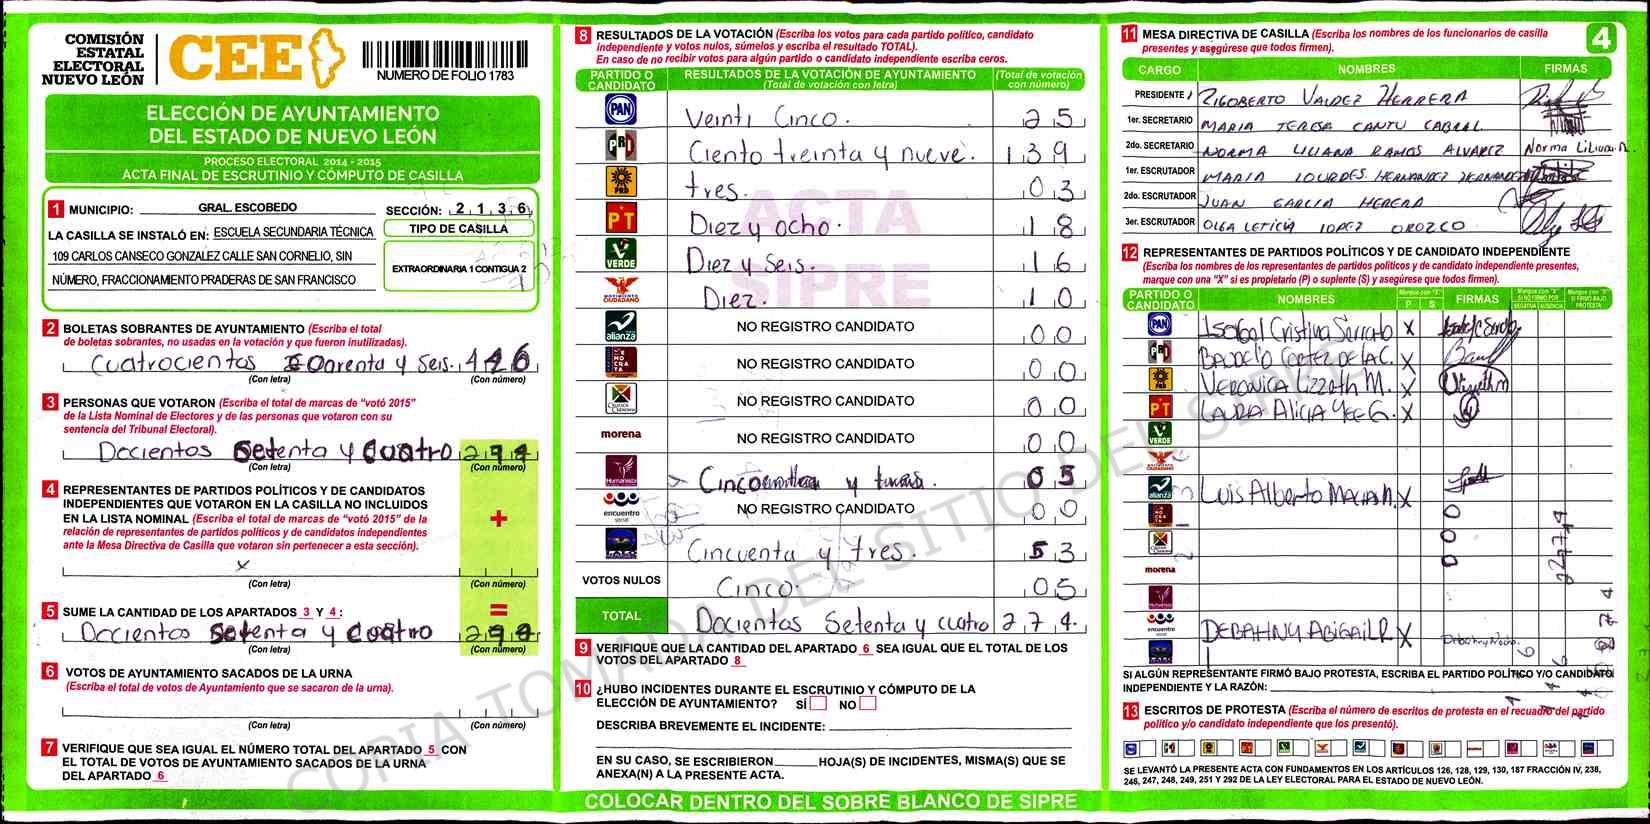 COMISIÓN
ESTATAL
ELECTORAL
NUEVO LEÓN
CEE
NUMERO DE FOLIO 1783
ELECCIÓN DE AYUNTAMIENTO
DEL ESTADO DE NUEVO LEÓN
PROCESO ELECTORAL 2014 - 2015
ACTA FINAL DE ESCRUTINIO Y CÓMPUTO DE CASILLA
1 MUNICIPIO: GRAL. ESCOBEDO SECCIÓN: 2 1 3 6
LA CASILLA SE INSTALÓ EN: ESCUELA SECUNDARIA TÉCNICA
109 CARLOS CANSECO GONZALEZ CALLE SAN CORNELIO, SIN
NÚMERO, FRACCIONAMIENTO PRADERAS DE SAN FRANCISCO
TIPO DE CASILLA
EXTRAORDINARIA 1 CONTIGUA 2
2 BOLETAS SOBRANTES DE AYUNTAMIENTO (Escriba el total
de boletas sobrantes, no usadas en la votación y que fueron inutilizadas).
Cuatrocientos y Seis.
(Con letra) (Con número)
3 PERSONAS QUE VOTARON (Escriba el total de marcas de “votó 2015”
de la Lista Nominal de Electores y de las personas que votaron con su
sentencia del Tribunal Electoral).
Docientos Setenta y Cuatro 274
(Con letra) (Con número)
4 REPRESENTANTES DE PARTIDOS POLÍTICOS Y DE CANDIDATOS
INDEPENDIENTES QUE VOTARON EN LA CASILLA NO INCLUIDOS
EN LA LISTA NOMINAL (Escriba el total de marcas de “votó 2015” de la
relación de representantes de partidos políticos y de candidatos independientes
ante la Mesa Directiva de Casilla que votaron sin pertenecer a esta sección).
+
x
(Con letra) (Con número)
5 SUME LA CANTIDAD DE LOS APARTADOS 3 Y 4 :
=
Docientos Setenta y Cuatro 274
(Con letra) (Con número)
6 VOTOS DE AYUNTAMIENTO SACADOS DE LA URNA
(Escriba el total de votos de Ayuntamiento que se sacaron de la urna).
(Con letra) (Con número)
7 VERIFIQUE QUE SEA IGUAL EL NÚMERO TOTAL DEL APARTADO 5 CON
EL TOTAL DE VOTOS DE AYUNTAMIENTO SACADOS DE LA URNA
DEL APARTADO 6
8 RESULTADOS DE LA VOTACIÓN (Escriba los votos para cada partido político, candidato
independiente y votos nulos, súmelos y escriba el resultado TOTAL).
En caso de no recibir votos para algún partido o candidato independiente escriba ceros.
PARTIDO O CANDIDATO
RESULTADOS DE LA VOTACIÓN DE AYUNTAMIENTO
(Total de votación con letra)
(Total de votación con número)
PAN Veinti Cinco. 2 5
PRI Ciento treinta y nueve. 1 3 9
PRD tres. 0 3
PT Diez y ocho. 1 8
VERDE Diez y Seis. 1 6
MOVIMIENTO CIUDADANO Diez. 1 0
alianza NO REGISTRO CANDIDATO 0 0
DEMOCRATA NO REGISTRO CANDIDATO 0 0
NO REGISTRO CANDIDATO 0 0
morena NO REGISTRO CANDIDATO 0 0
Humanista Cinco 0 5
encuentro social NO REGISTRO CANDIDATO 0 0
Cincuenta y tres. 5 3
VOTOS NULOS Cinco. 0 5
TOTAL Docientos Setenta y cuatro 2 7 4.
ACTA
SIPRE
9 VERIFIQUE QUE LA CANTIDAD DEL APARTADO 6 SEA IGUAL QUE EL TOTAL DE LOS
VOTOS DEL APARTADO 8
10 ¿HUBO INCIDENTES DURANTE EL ESCRUTINIO Y CÓMPUTO DE LA
ELECCIÓN DE AYUNTAMIENTO? SÍ NO
DESCRIBA BREVEMENTE EL INCIDENTE:
EN SU CASO, SE ESCRIBIERON HOJA(S) DE INCIDENTES, MISMA(S) QUE SE
ANEXA(N) A LA PRESENTE ACTA.
COLOCAR DENTRO DEL SOBRE BLANCO DE SIPRE
11 MESA DIRECTIVA DE CASILLA (Escriba los nombres de los funcionarios de casilla
presentes y asegúrese que todos firmen).
4
CARGO NOMBRES FIRMAS
PRESIDENTE RIGOBERTO VALDEZ HERRERA
1er. SECRETARIO MARIA TERESA CANTU CABRAL
2do. SECRETARIO NORMA LILIANA RAMOS ALVAREZ Norma Liliana R.
1er. ESCRUTADOR MARIA LOURDES HERNANDEZ HERNANDEZ
2do. ESCRUTADOR JUAN GARCIA HERERA
3er. ESCRUTADOR OLGA LETICIA LOPEZ OROZCO
12 REPRESENTANTES DE PARTIDOS POLÍTICOS Y DE CANDIDATO INDEPENDIENTE
(Escriba los nombres de los representantes de partidos políticos y de candidato independiente presentes,
marque con una “X” si es propietario (P) o suplente (S) y asegúrese que todos firmen).
PARTIDO O CANDIDATO NOMBRES P S FIRMAS
PAN Isabel Cristina Serrato X
PRI BAUDELIO CORTEZ DE LA C. X
PRD VERONICA LIZZETH M. X
PT LAURA ALICIA YEE G. X
VERDE
MOVIMIENTO CIUDADANO
alianza Luis Alberto Macias M. X
morena
encuentro social DEBAHNY ABIGAIL R X
SI ALGÚN REPRESENTANTE FIRMÓ BAJO PROTESTA, ESCRIBA EL PARTIDO POLÍTICO Y/O CANDIDATO
INDEPENDIENTE Y LA RAZÓN:
13 ESCRITOS DE PROTESTA (Escriba el número de escritos de protesta en el recuadro del partido
político y/o candidato independiente que los presentó).
SE LEVANTÓ LA PRESENTE ACTA CON FUNDAMENTOS EN LOS ARTÍCULOS 126, 128, 129, 130, 187 FRACCIÓN IV, 238,
246, 247, 248, 249, 251 Y 292 DE LA LEY ELECTORAL PARA EL ESTADO DE NUEVO LEÓN.
COPIA TOMADA DEL SITIO DEL SIPRE